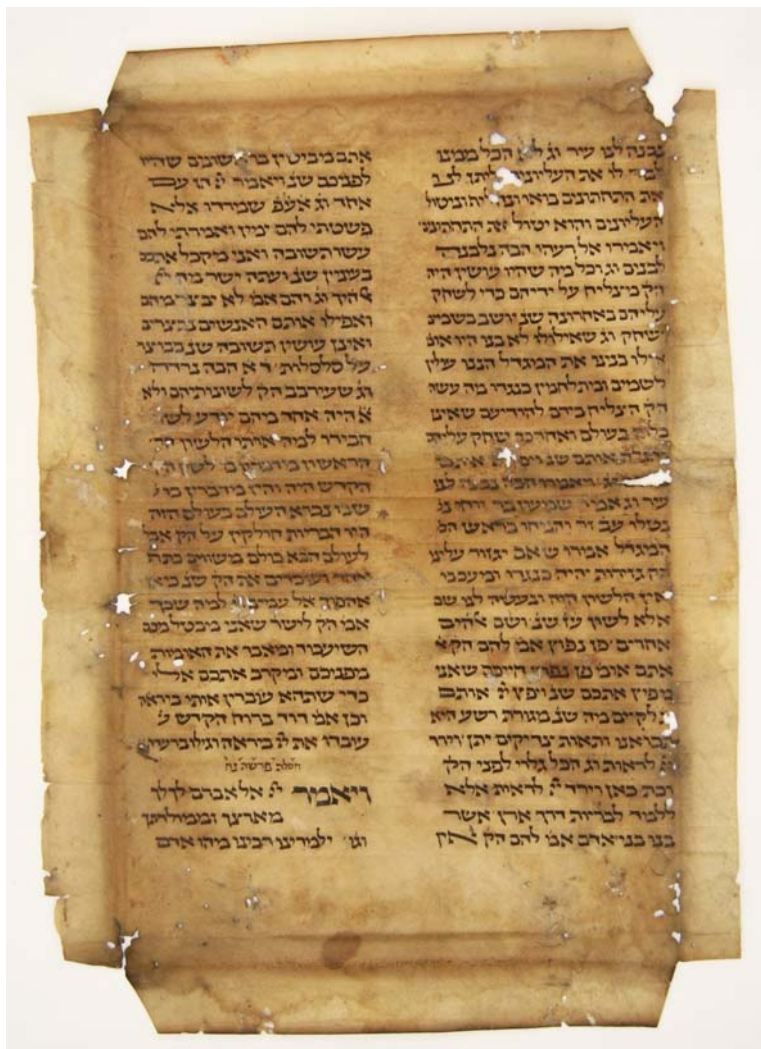 נבנה לנו עיר וג הכל ממנו
לו את העליונים ליתן לנו
את התחתונים בואו
העליונים והוא יטול את התחתוני׳
ויאמרו אל רעהו הבה נלבנה
לבנים וג וכל מה שהיו עושין היה
הק מצליח על ידיהם כדי לשחק
עליהם באחרונה שנ׳ יושב בשמים
ישחק וג שאילולו לא בנו היו אומ׳
אילו בנינו את המגדל הננו עולין
לשמים ומתלחמין כנגדו מה עשה
הק הצליח בידם להודיעם שאינן
כלום בעולם ואחר כך שחק עליהם
והגלה אותם שנ׳ אותם
ויאמרו הבה נבנה לנו
עיר וג אמר שמעון בר
בטלו עב זר והניחו בראש
המגדל אמרו שאם יגזור עלינו
הק גזירות יהיה כנגדו ומעכבו
אין הלשון הזה ונעשה לנו שם
אלא לשון עז שנ׳ ושם
אחרים פן נפוץ אמ׳ להם הק
אתם אומ׳ פן נפוץ חייכם שאני
מפיץ אתכם שנ׳ ויפץ אותם
לקיים מה שנ׳ מגורת רשע היא
תבואנו ותאות צדיקים יתן וירד
לראות וג הכל גלוי לפני הק
וכת כאן וירד לראות אלא
ללמד לבריות דרך ארץ אשר
בנו בני אדם אמ׳ להם הק
אתם מביטין בראשונים שהיו
לפניכם שנ׳ ויאמר הן עם
אחד וג אעפ שמרדו אלא
פשטתי להם ימין ואמרתי להם
עשו תשובה ואני מקבל אתכם
כענין שנ׳ ועתה ישר מה
וג והם אמ׳ לא יבצר מהם
ואפילו אותם האנשים
ואינן עושין תשובה שנ׳ כבוצר
על סלסלות ד׳א הבה נרדה
וג שעירבב הק לשונותיהם ולא
היה אחד מהם יודע
חבירו למה אותו הלשון
הראשון מדברים לשון
הקדש היה והיו מדברין
שבו נברא העולם בעולם הזה
היו הבריות חולקין על הק אבל
לעולם הבא כולם משווים כתף
אחד ועובדים את הק שנ׳ כי אז
אהפוך אל עמים למה שכך
אמ׳ הק לישר׳ שאני מבטל מכם
השיעבוד ומאבד את האומות
מפניכם ומקרב אתכם אלי
כדי שתהא עובדין אותי ביראה
וכן אמ׳ דוד ברוח הקדש
עובדו את ביראה וגילו ברעדה
חסלת פרשת נח
ויאמר אל אברם לך לך
מארצך וממולדתך
וגו׳ ילמדינו רבינו מהו אדם